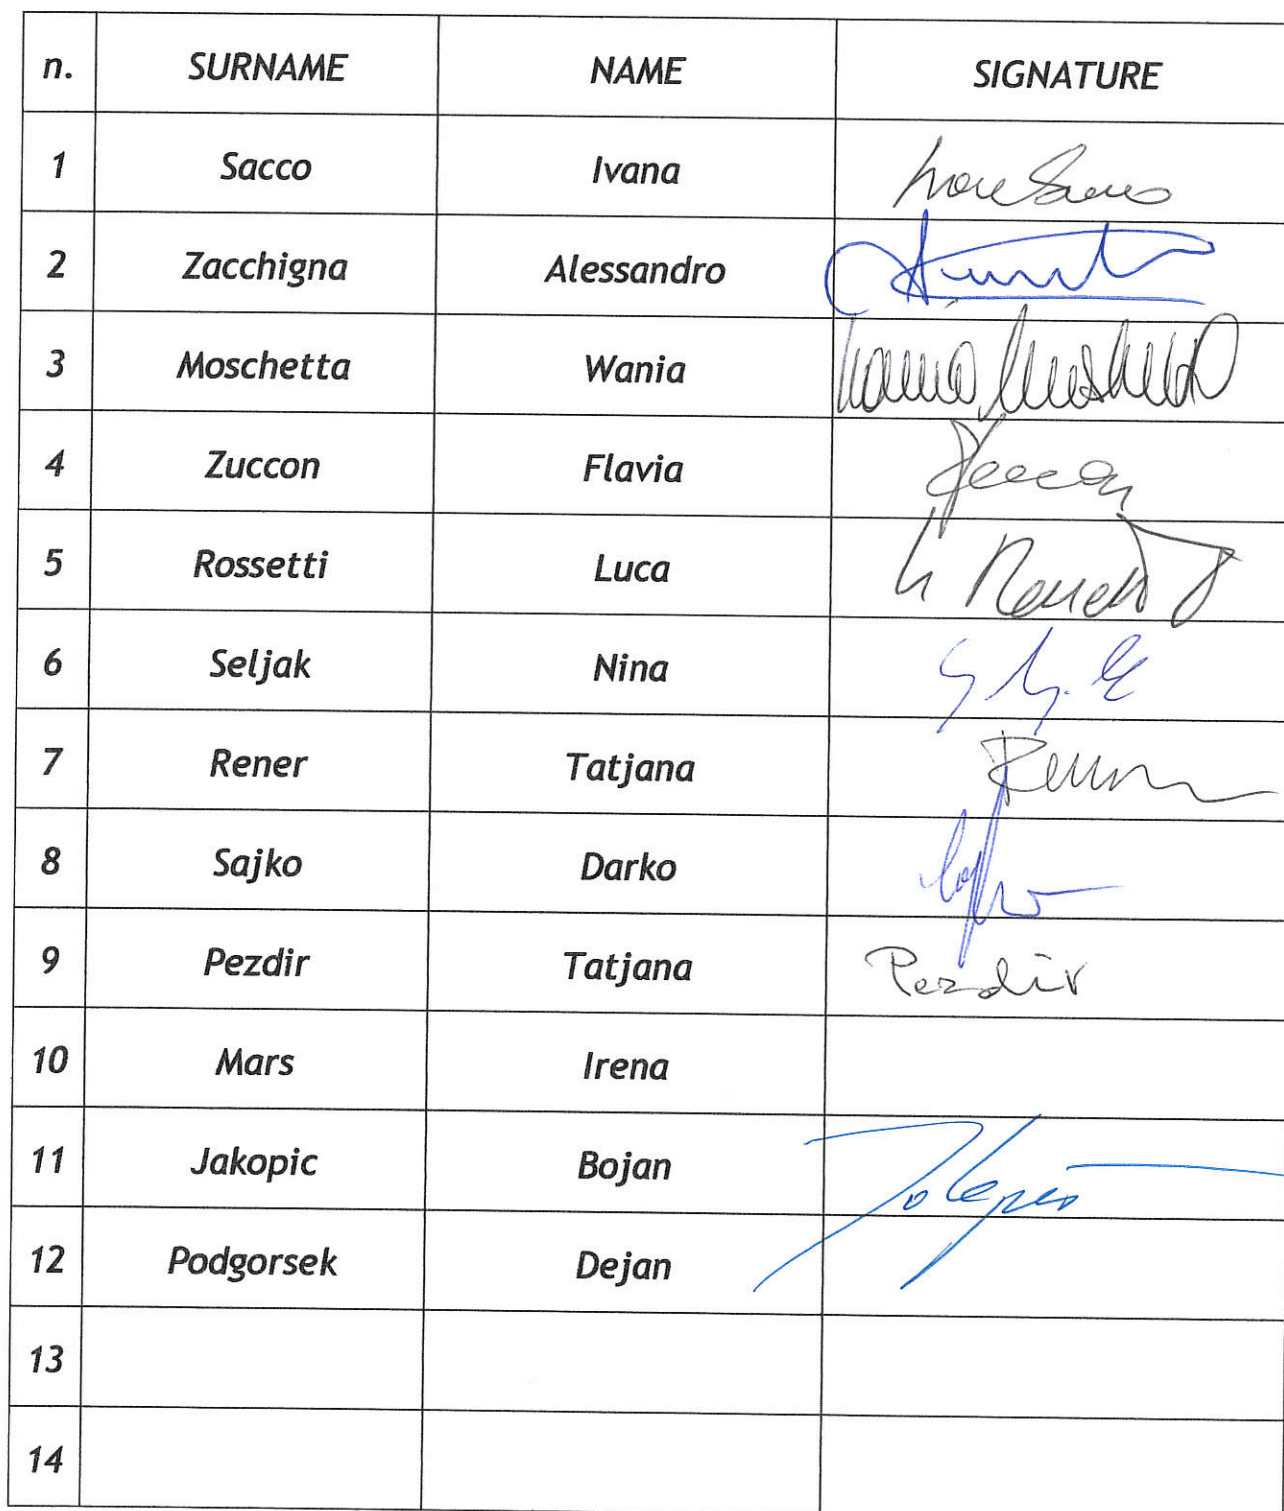 n. SURNAME NAME SIGNATURE
1 Sacco Ivana
2 Zacchigna Alessandro
3 Moschetta Wania
4 Zuccon Flavia
5 Rossetti Luca
6 Seljak Nina
7 Rener Tatjana
8 Sajko Darko
9 Pezdir Tatjana Pezdir
10 Mars Irena
11 Jakopic Bojan
12 Podgorsek Dejan
13
14